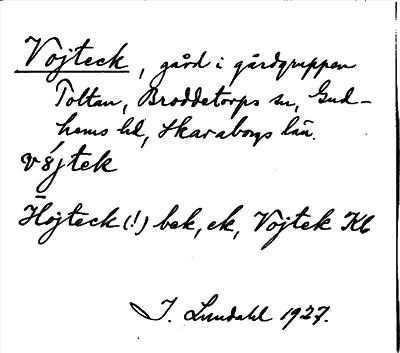 Vojteck, gård i gårdgruppen
Toltan, Broddetorps sn, Gud-
hems hd, Skaraborgs län.
vójtek
Höjteck (!) bek, ek, Vojtek Kb
J. Lundahl 1927.